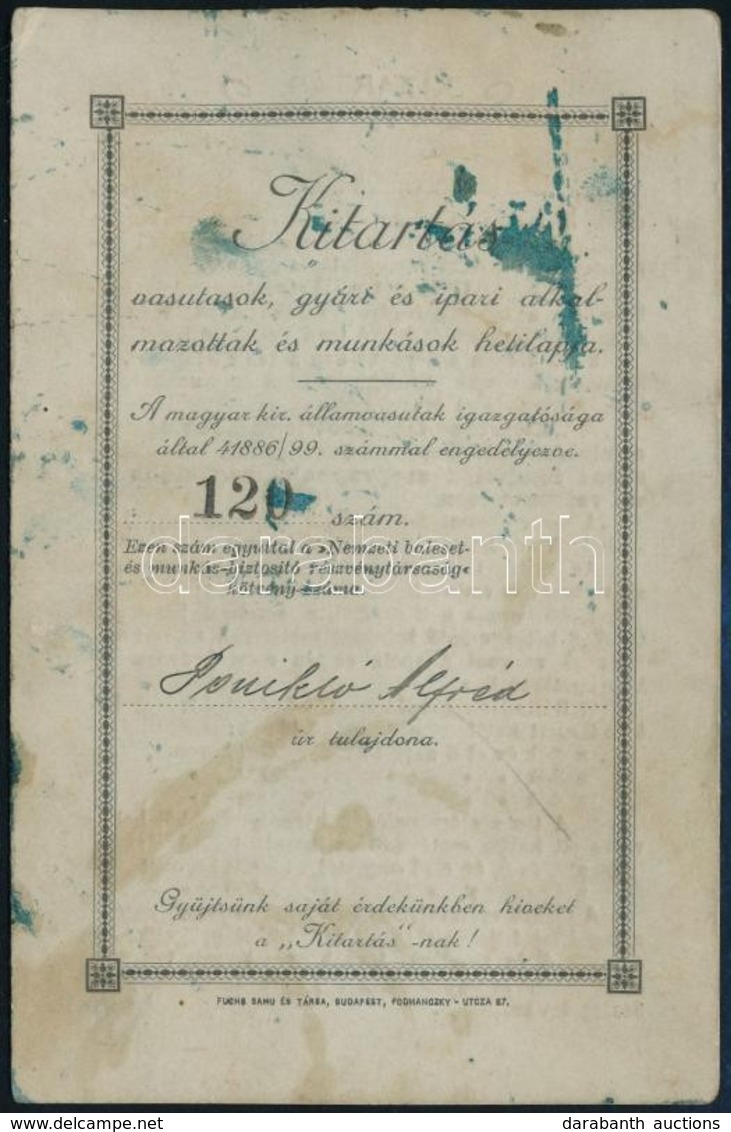 Kitartás
vasutasok, gyári és ipari alkal-
mazottak és munkások hetilapja.
A magyar kir. államvasutak igazgatósága
által 41886/99. számmal engedélyezve.
120 szám.
Ezen szám egyúttal a »Nemzeti baleset-
és munkás-biztositó részvénytársaság«
kötvény-száma.
Alfréd
úr tulajdona.
Gyüjtsünk saját érdekünkben hiveket
a „Kitartás"-nak!
FUCHS SAMU ÉS TÁRSA, BUDAPEST, PODMANICZKY-UTCZA 27.
darabanth
darabanth auctions